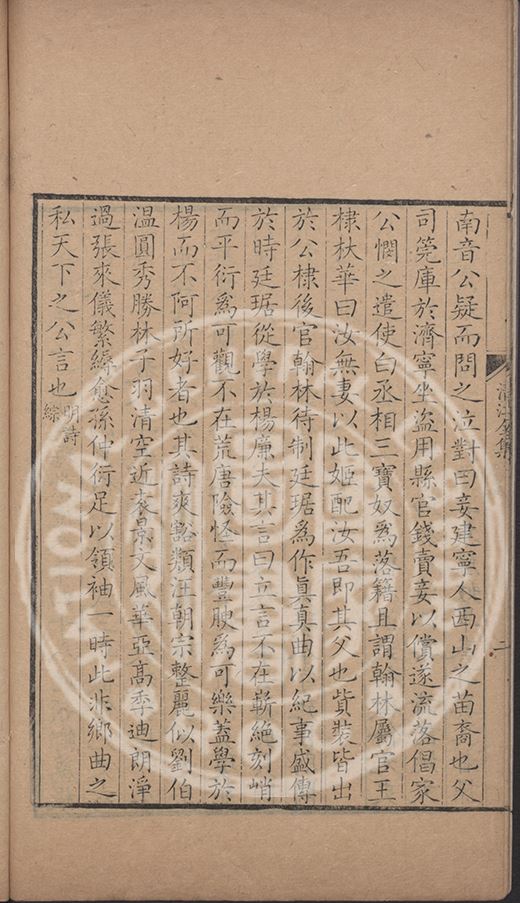 南音公疑而問之泣對曰妾建寧人西山之苗裔也父
司筦庫於濟寧坐盜用縣官錢賣妾以償遂流落倡家
公憫之遣使白丞相三寶奴爲落籍且謂翰林屬官王
棣林華曰汝無妻以此姬配汝吾即其父也貲裝皆出
於公棣後官翰林待制廷琚爲作眞真曲以紀事盛傳
於時廷琚從學於楊廉夫其言曰立言不在嶄絕刻峭
而平衍爲可觀不在荒唐險怪而豐腴爲可樂蓋學於
楊而不阿所好者也其詩爽豁類汪朝宗整麗似劉伯
溫圓秀勝林子羽清空近袁景文風華亞高季迪朗淨
過張來儀繁縟愈孫仲衍足以領袖一時此非鄉曲之
私天下之公言也明詩綜
清江
集
二